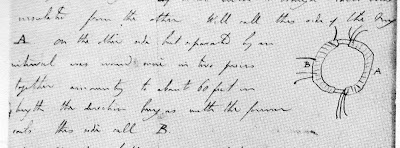 insulated from the other. Will call this side of the ring
A. on the other side but separated by an
interval was wound wire in two pieces
together amounting to about 60 feet in
length the direction being as with the former
coils this side call B.
B
A